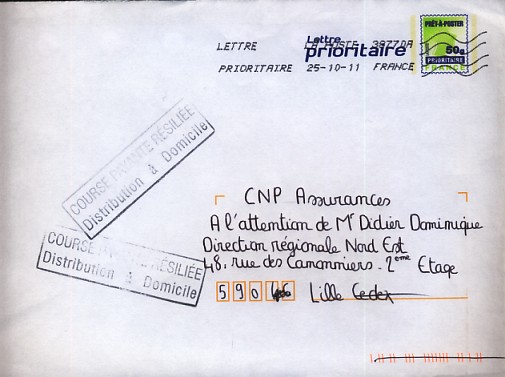 LETTRE LA POSTE 3877DA
PRIORITAIRE 25-10-11 FRANCE
Lettre
prioritaire
PRÊT-À-POSTER
50g
PRIORITAIRE
FRANCE
COURSE PAYANTE RÉSILIÉE
Distribution à Domicile
COURSE PAYANTE RÉSILIÉE
Distribution à Domicile
CNP Assurances
A l'attention de Mr Didier Dominique
Direction régionale Nord Est
48, rue des Canonniers - 2eme Etage
590 Lille Cedex